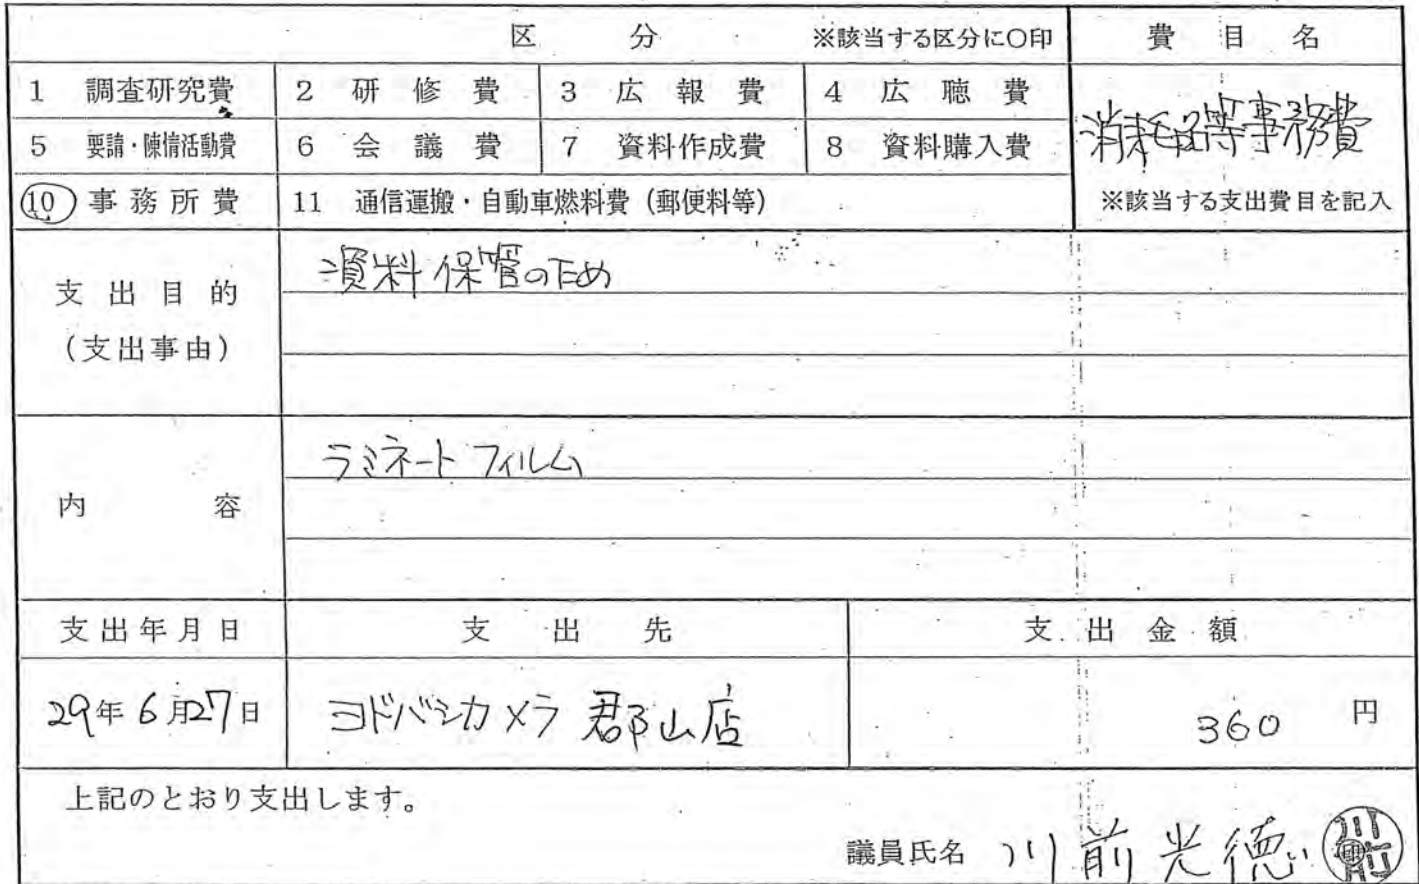 区分 ※該当する区分に○印 費目名
1 調査研究費 2 研修費 3 広報費 4 広聴費
消耗品等事務費
5 要請・陳情活動費 6 会議費 7 資料作成費 8 資料購入費
10 事務所費 11 通信運搬・自動車燃料費（郵便料等） ※該当する支出費目を記入
支出目的
（支出事由）
資料保管のため
内容
ラミネートフィルム
支出年月日 支出先 支出金額
29年6月27日 ヨドバシカメラ 郡山店 360 円
上記のとおり支出します。
議員氏名 川前光徳